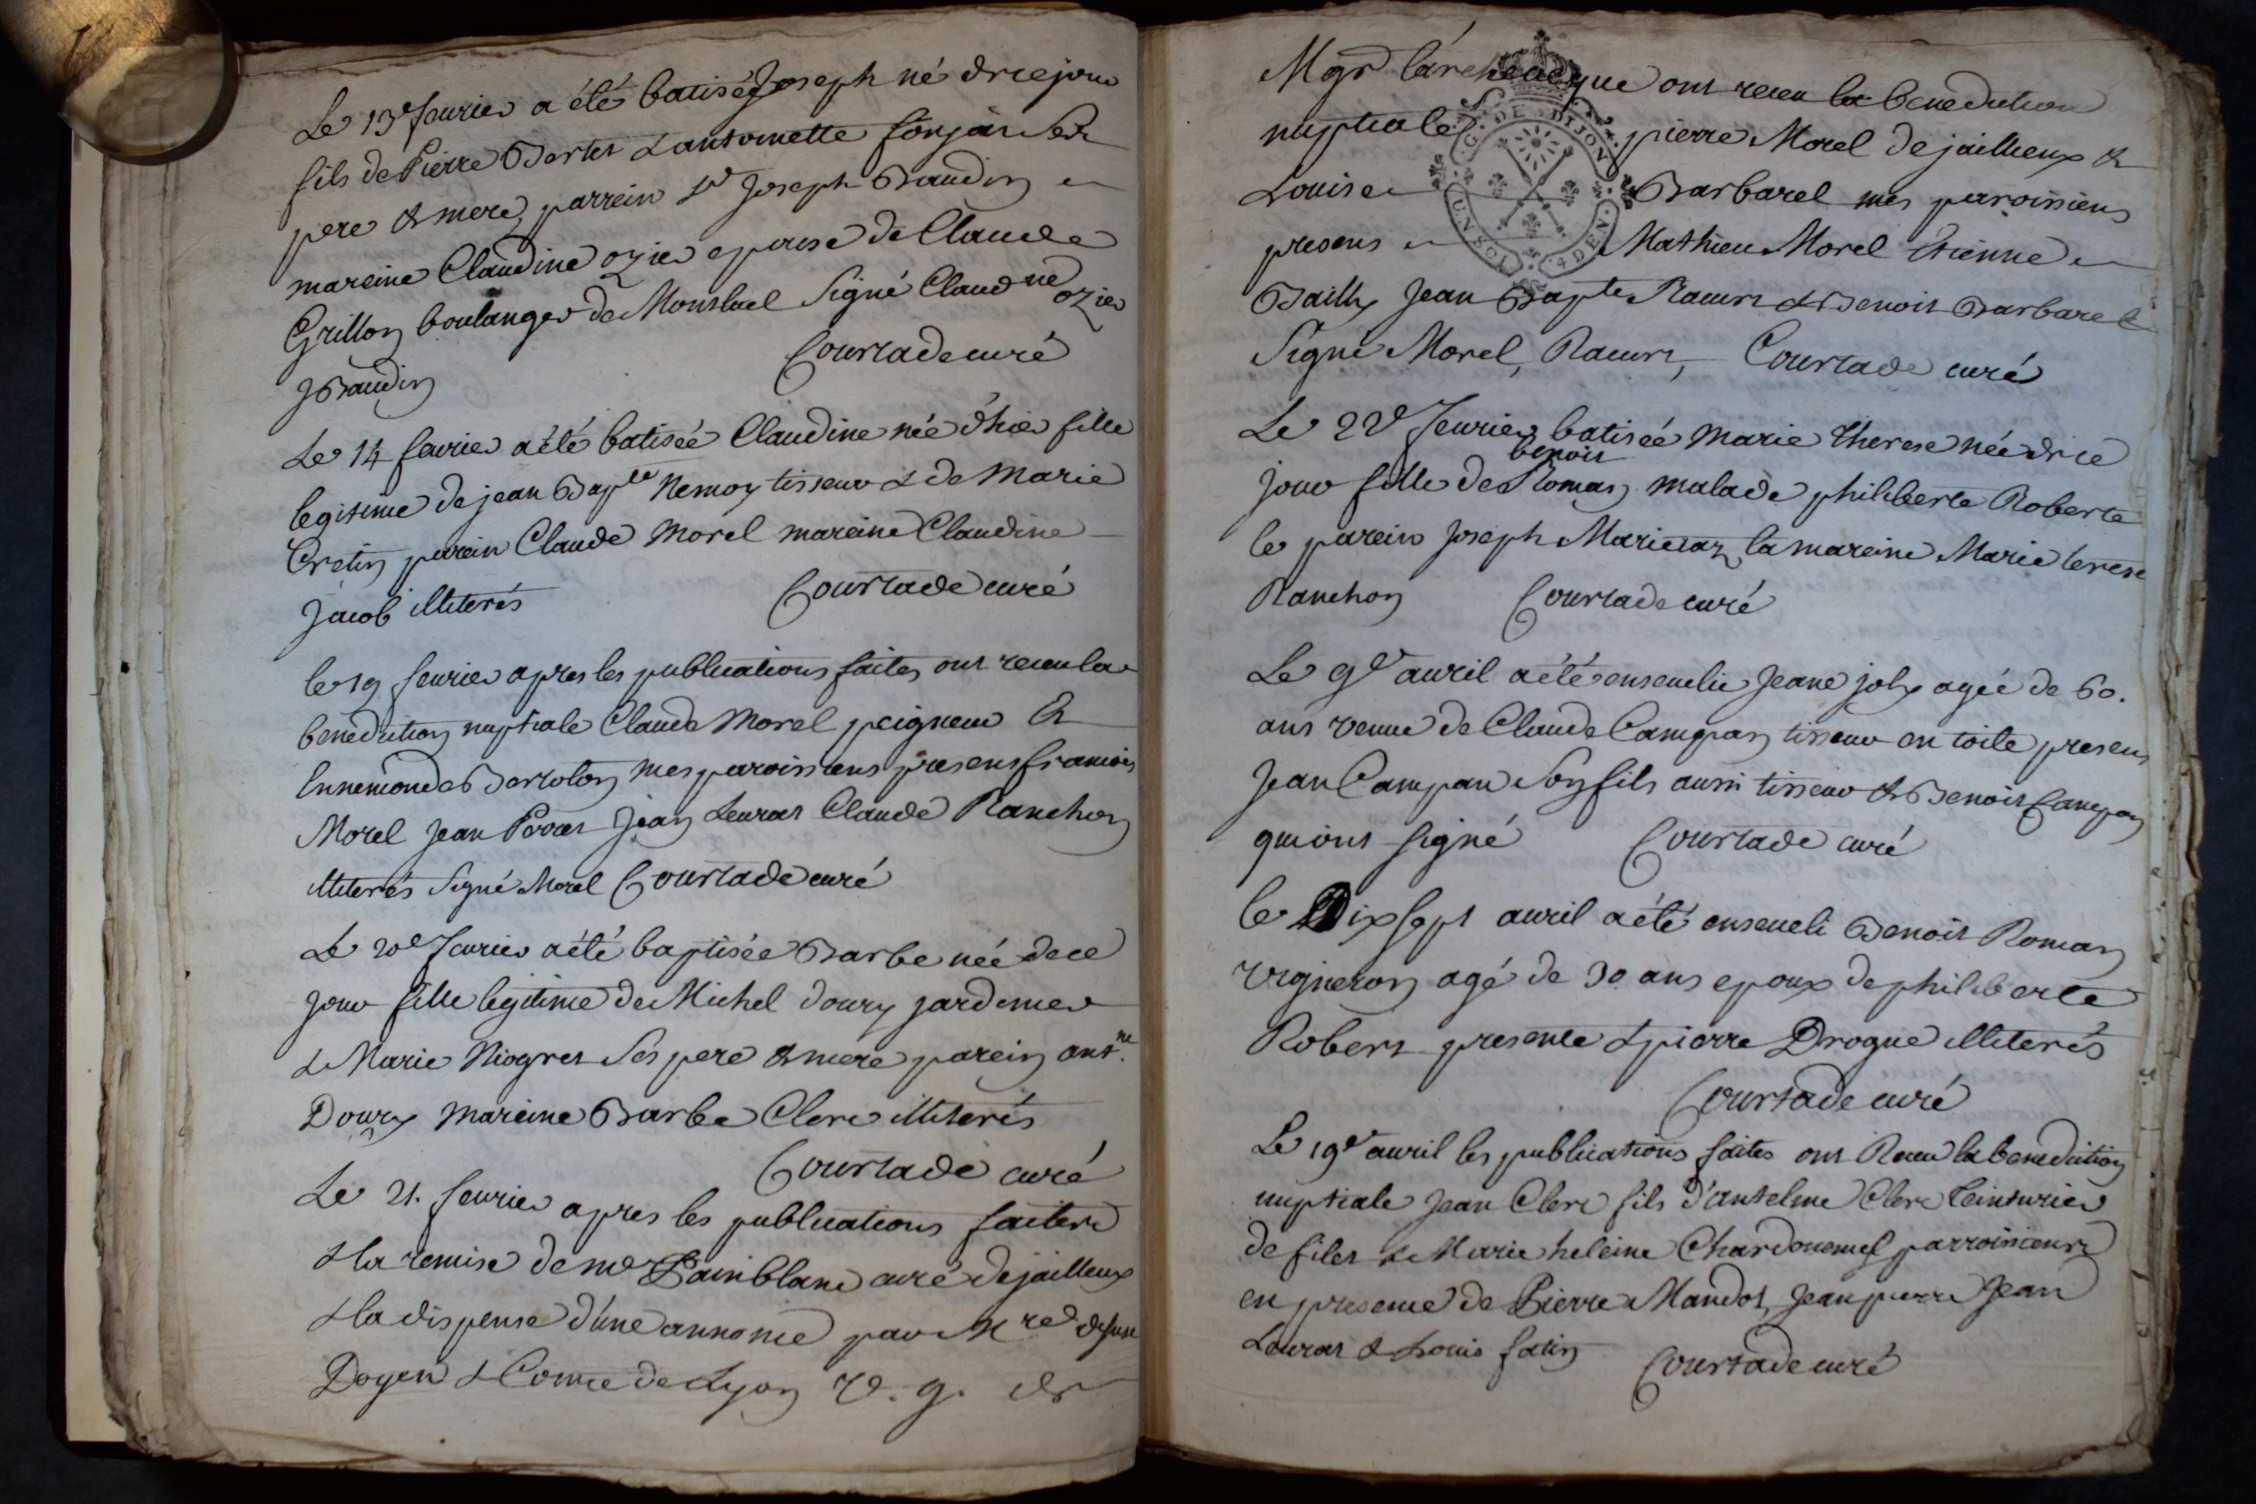 Le 13e feurier a été batisé Joseph né dece jour
fils de Pierre Bertet & antoinette fonjat Ses
pere & mere, parrein Sr Joseph Baudin
mareine Claudine ozier epouse de Claude
Grillon boulanger de Montluel Signé Claudne ozier
JBaudin Courtade curé
Le 14 feurier a été batisée Claudine née d'hier fille
legitime de jean Bapte Nemoz tisseur & de Marie
Cretin parein Claude Morel mareine Claudine
Jacob illiterés Courtade curé
le 19 feurier apres les publications faites ont receu la
benediction nuptiale Claude Morel peigneur &
Ennemonde Bertolon mes paroissiens presens francois
Morel Jean Perret Jean Leurat Claude Ranchon
illiterés Signé Morel Courtade curé
Le 20e feurier a été baptisée Barbe née de ce
jour fille legitime de Michel doury jardinier
& Marie Niogret Ses pere & mere parein antne
Doury mareine Barbe Clerc illiterés
Courtade curé
Le 21. feurier apres les publications faites
& la remise de mr Painblanc curé de jailleux
& la dispense d'une annonce par Mre
Doyen & Comte de Lyon v. g. de
Mgr l'archeveque ont receu la benediction
nuptiale pierre Morel de jailleux &
G. DE DIJON
Louise Barbarel mes paroissiens
presens Mathieu Morel Etienne
UN SOL 4 DEN.
Bailly Jean Bapte Racurt & Benoit Barbarel
Signé Morel, Racurt, Courtade curé
Le 22e feurier batisée Marie Therese née de ce
benoit
jour fille de Roman malade philiberte Roberte
le parein Joseph Marietaz la mareine Marie terese
Ranchon Courtade curé
Le 9e auril a été enseuelie Jeane joly agée de 60.
ans veuue de Claude Campan tisseur en toile presens
Jean Campan Son fils aussi tisseur & Benoit Campan
qui ont signé Courtade curé
le Dix Sept auril a été enseueli Benoit Roman
vigneron agé de 30 ans epoux de philiberte
Robert presence & pierre Drogue illiterés
Courtade curé
Le 19e auril les publications faites ont Receu la benediction
nuptiale Jean Clerc fils d'antelme Clerc teinturier
de filet & Marie heleine Chardonemel parroissiens
en presence de Pierre Mandot, Jean pierre Jean
Leurat & Louis fatin Courtade curé